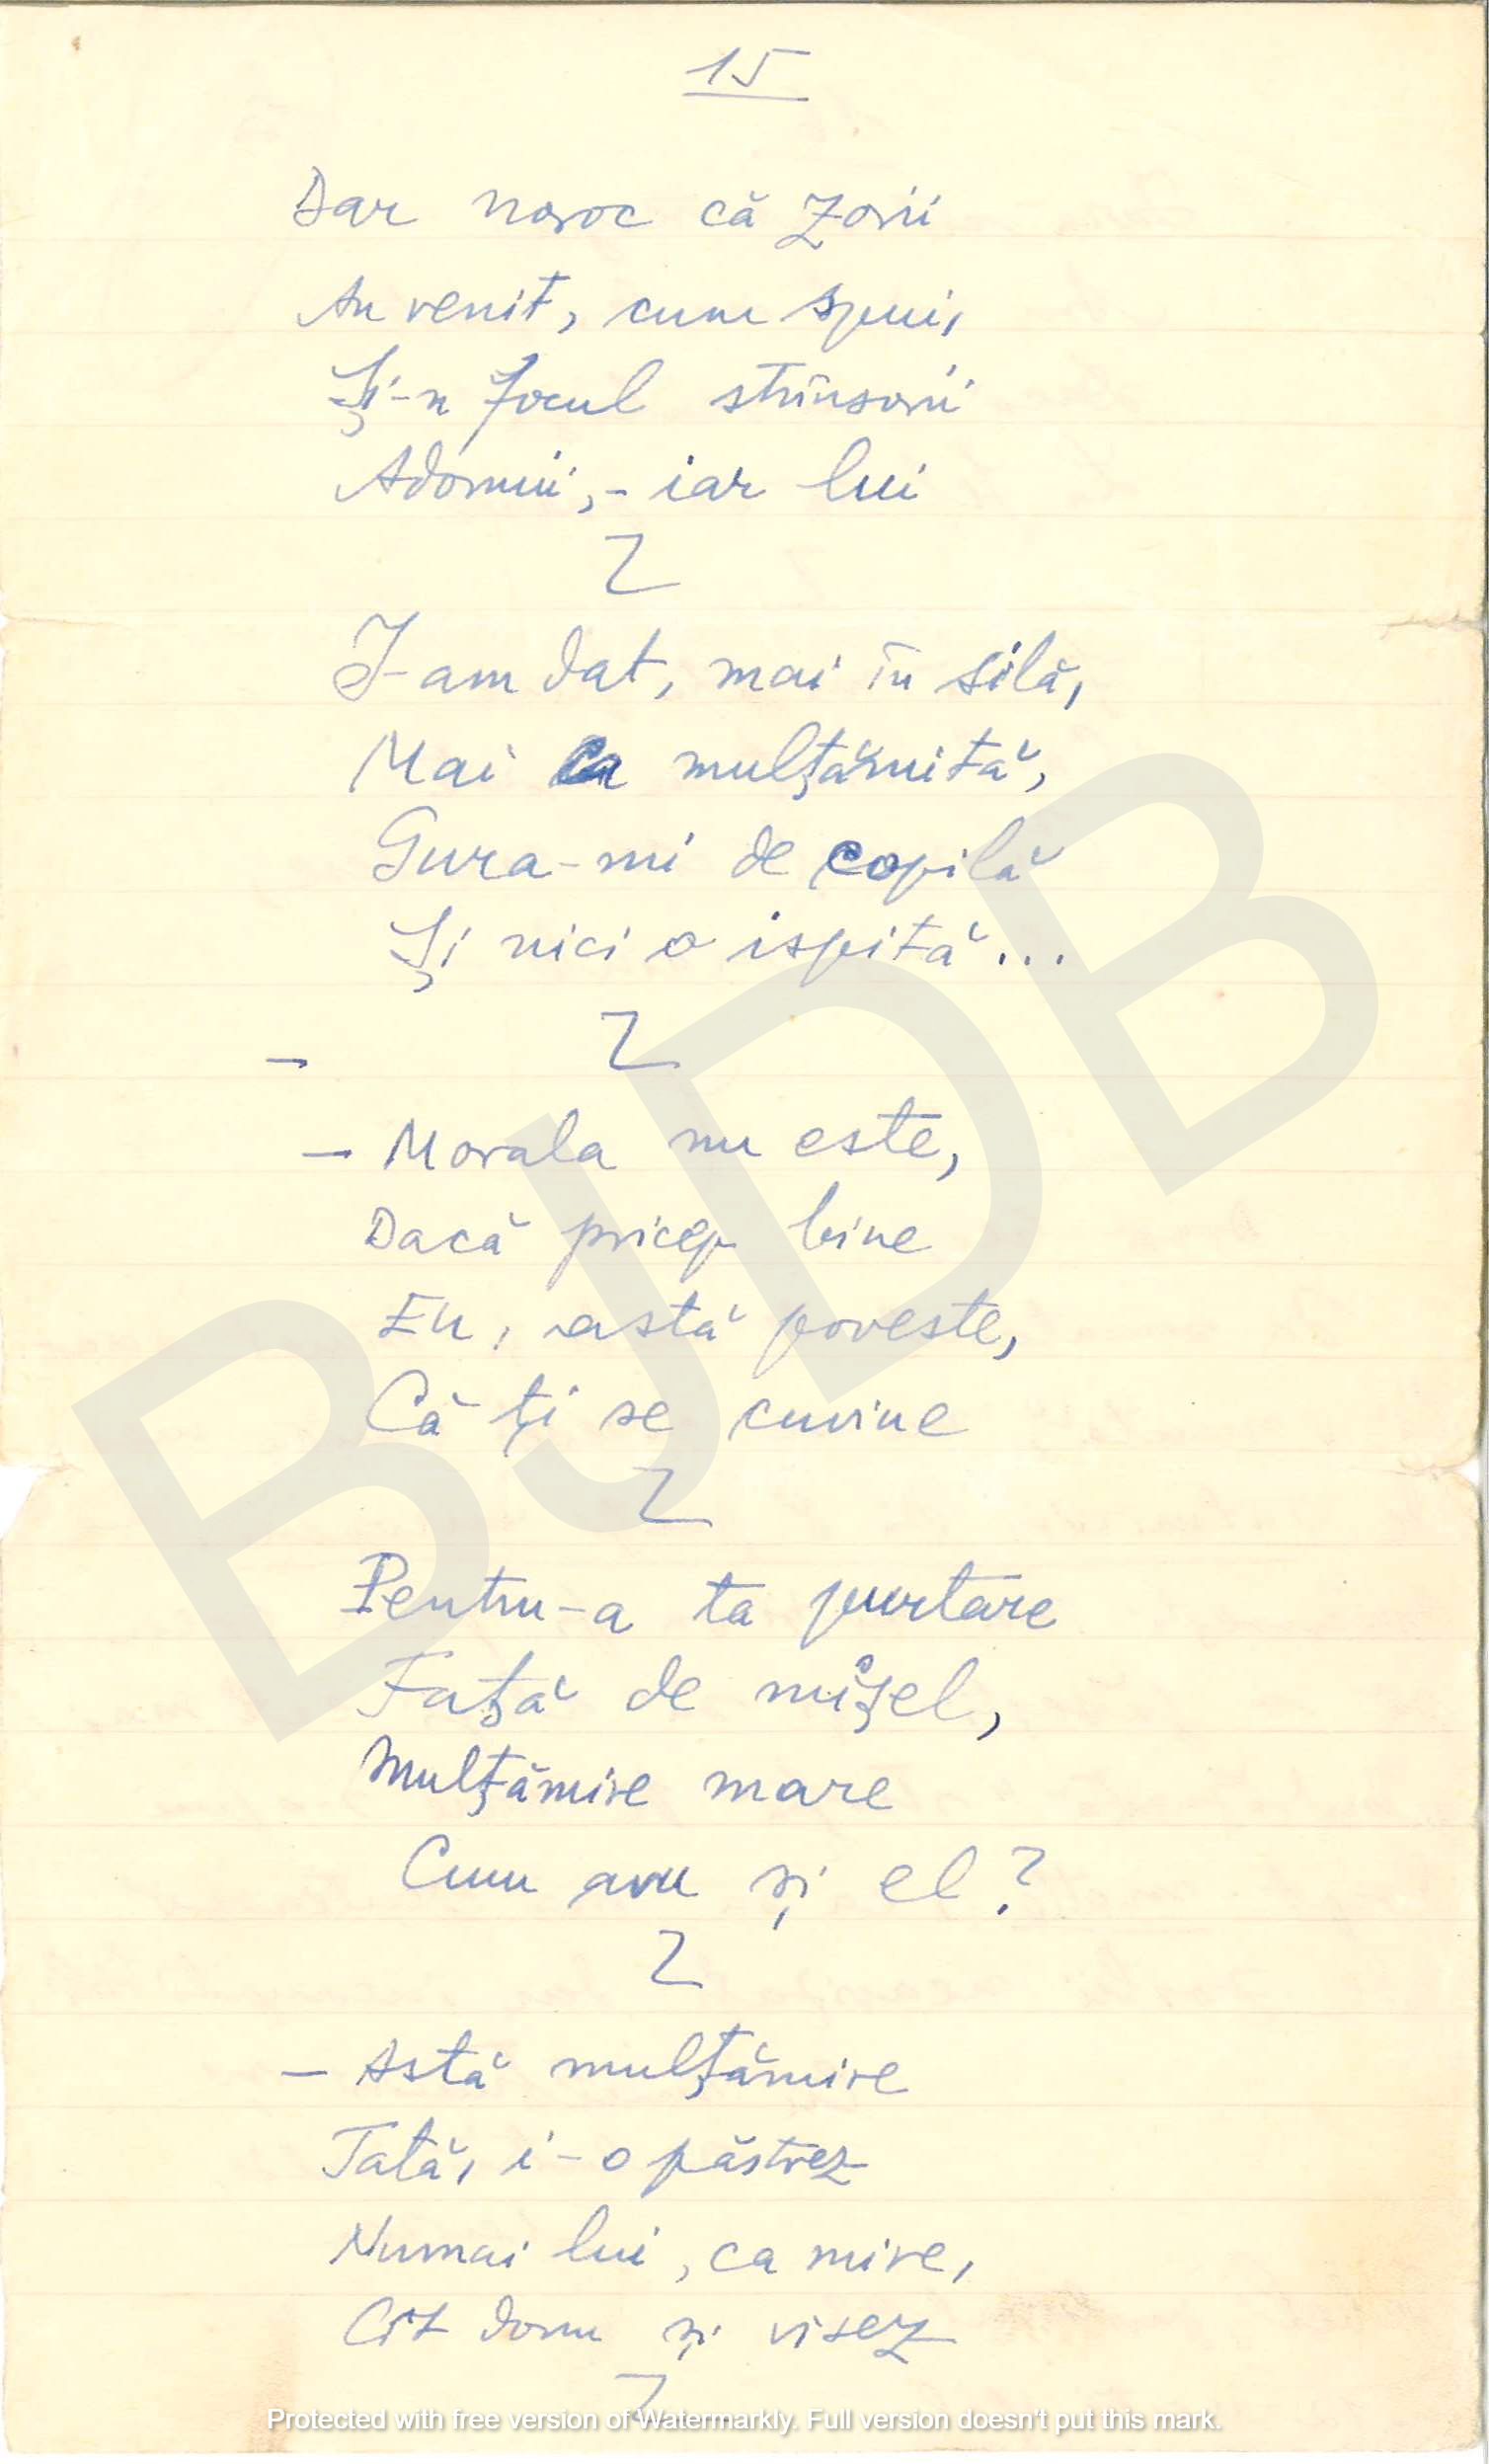 15
Dar noroc că zorii
Au venit, cum spui,
Și-n focul strînsorii
Adormii, - iar lui
Z
I-am dat, mai în silă,
Mai ca mulțămită,
Gura-mi de copilă
Și nici o ispită...
Z
-
- Morala nu este,
Dacă pricep bine
Eu, astă poveste,
Că ți se cuvine
Z
Pentru-a ta purtare
Față de mișel,
Mulțămire mare
Cum avu și el?
Z
- Astă mulțămire
Tată, i-o păstrez
Numai lui, ca mire,
Cît dorm și visez
Z
BJDB
Protected with free version of Watermarkly. Full version doesn't put this mark.